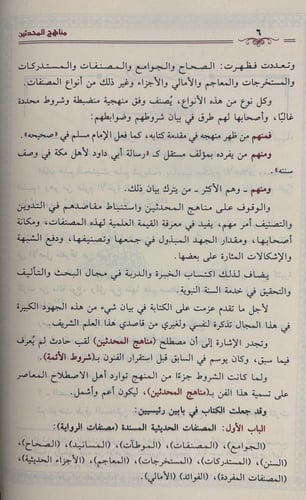 ٦
مناهج المحدثين
وتعددت فظهرت: الصحاح والجوامع والمصنفات والمستدركات
والمستخرجات والمعاجم والأمالي والأجزاء وغير ذلك من أنواع المصنفات.
وكل نوع من هذه الأنواع، يُصنف وفق منهجية منضبطة وشروط محددة
غالبًا، وأصحابها لهم طرق في بيان شروطهم وضوابطهم:
فمنهم من ظهر منهجه في مقدمة كتابه، كما فعل الإمام مسلم في «صحيحه».
ومنهم من يفرده بمؤلف مستقل كـ «رسالة أبي داود لأهل مكة في وصف
سننه».
ومنهم ـ وهم الأكثر ـ من يترك بيان ذلك.
والوقوف على مناهج المحدثين واستنباط مقاصدهم في التدوين
والتصنيف أمر مهم، يفيد في معرفة القيمة العلمية لهذه المصنفات، ومكانة
أصحابها، ومقدار الجهد المبذول في جمعها وتصنيفها، ودفع الشبهة
والإشكالات المثارة على بعضها.
يضاف لذلك اكتساب الخبرة والدربة في مجال البحث والتأليف
والتحقيق في خدمة السنة النبوية.
لأجل ما تقدم عزمت على الكتابة في بيان شيء من هذه الجهود الكبيرة
في هذا المجال تذكرة لنفسي ولغيري من قاصدي هذا العلم الشريف.
وتجدر الإشارة إلى أن مصطلح (مناهج المحدثين) لقب حادث لم يُعرف
فيما سبق، وكان يوسم في السابق قبل استقرار الفنون بـ(شروط الأئمة).
ولما كانت الشروط جزءًا من المنهج توارد أهل الاصطلاح المعاصر
على تسمية هذا الفن بـ(مناهج المحدثين)، ليكون أعم وأشمل.
وقد جعلت الكتاب في بابين رئيسيين:
الباب الأول: المصنفات الحديثية المسندة (مصنفات الرواية):
(الجوامع)، (المصنفات)، (الموطآت)، (المسانيد)، (الصحاح)،
(السنن)، (المستدركات)، (المستخرجات)، (المعاجم)، (الأجزاء الحديثية)،
(المصنفات المفردة)، (الفوائد)، (الأمالي).